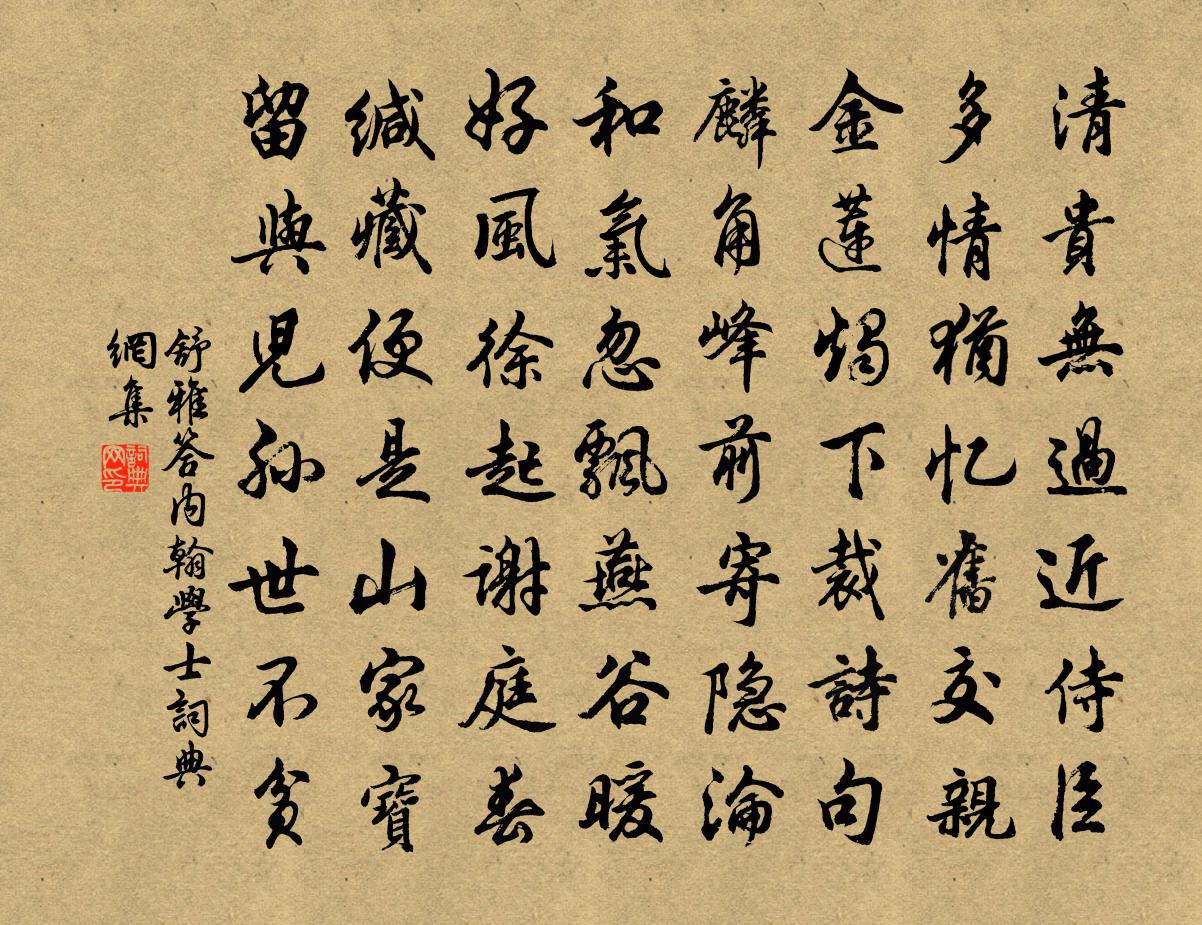 清貴無過近侍臣
多情猶忆舊交親
金蓮燭下裁詩句
麟角峰前寄隐淪
和氣忽飄燕谷暖
好風徐起謝庭春
缄藏便是山家寶
留與兒孙世不貧
舒雅答内翰學士詞典
網集
詞典
网印